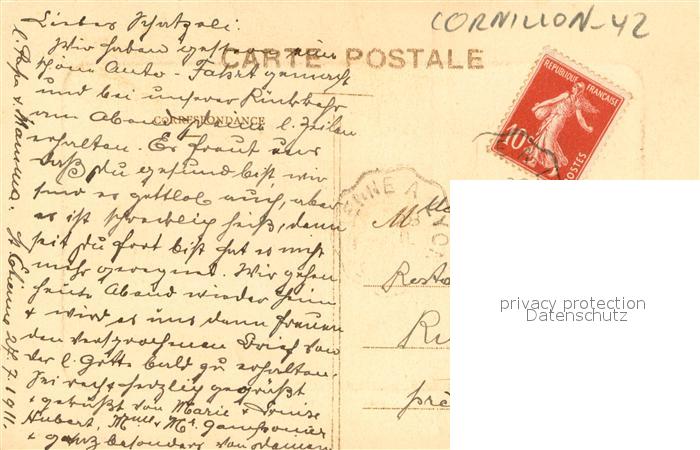 CORNILLON-42
CARTE POSTALE
CORRESPONDANCE
REPUBLIQUE FRANÇAISE
10c
POSTES
Liebes Schatzeli:
Wir haben gestern eine
schöne Auto-Fahrt gemacht
und bei unserer Rückkehr
am Abend l. Zeilen
erhalten. Es freut uns
daß du gesund bist, wir
sind es gottlob auch, aber
es ist schrecklich heiß, denn
seit du fort bist hat es nicht
mehr geregnet. Wir gehen
heute Abend wieder heim
+ wird es uns dann freuen
den versprochenen Brief von
der l. Gotte bald zu erhalten.
Sei recht herzlich gegrüßt
+ geküßt von Marie + Louise
Hubert, Mme + Mr.
+ ganz besonders von Deinen
l. Papa + Mamma. St Etienne 27.7.1911.
ENNE A
Mlle
Resta
Ru
prè
privacy protection
Datenschutz